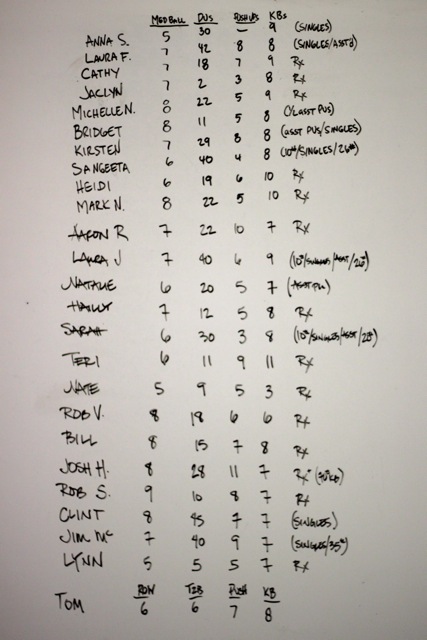 MED BALL DUS PUSHUPS KBs
ANNA S. 5 30 — 9 (SINGLES)
LAURA F. 7 42 8 8 (SINGLES/ASST'D)
CATHY 7 18 7 9 Rx
JACLYN 7 2 3 8 Rx
MICHELLE N. 8 22 5 9 Rx
BRIDGET 8 11 5 8 ASST PUS)
KIRSTEN 7 29 8 8 (ASST PUS/SINGLES)
SANGEETA 6 40 4 8 (10#/SINGLES/26#)
HEIDI 6 19 6 10 Rx
MARK N. 8 22 5 10 Rx
AARON R 7 22 10 7 Rx
LAURA J 7 40 6 9 (10#/SINGLES/ASST/26#)
NATALIE 6 20 5 7 (ASST PU)
HAILLY 7 12 5 8 Rx
SARAH 6 30 3 8 (10#/SINGLES/ASST/20#)
TERI 6 11 9 11 Rx
NATE 5 9 5 3 Rx
ROB V. 8 18 6 6 Rx
BILL 8 15 7 8 Rx
JOSH H. 8 28 11 7 Rx+
ROB S. 9 10 8 7 Rx
CLINT 8 45 7 7 (SINGLES)
JIM Mc 7 40 9 7 (SINGLES/35#)
LYNN 5 5 5 7 Rx
ROW T2B PUSH KB
TOM 6 6 7 8